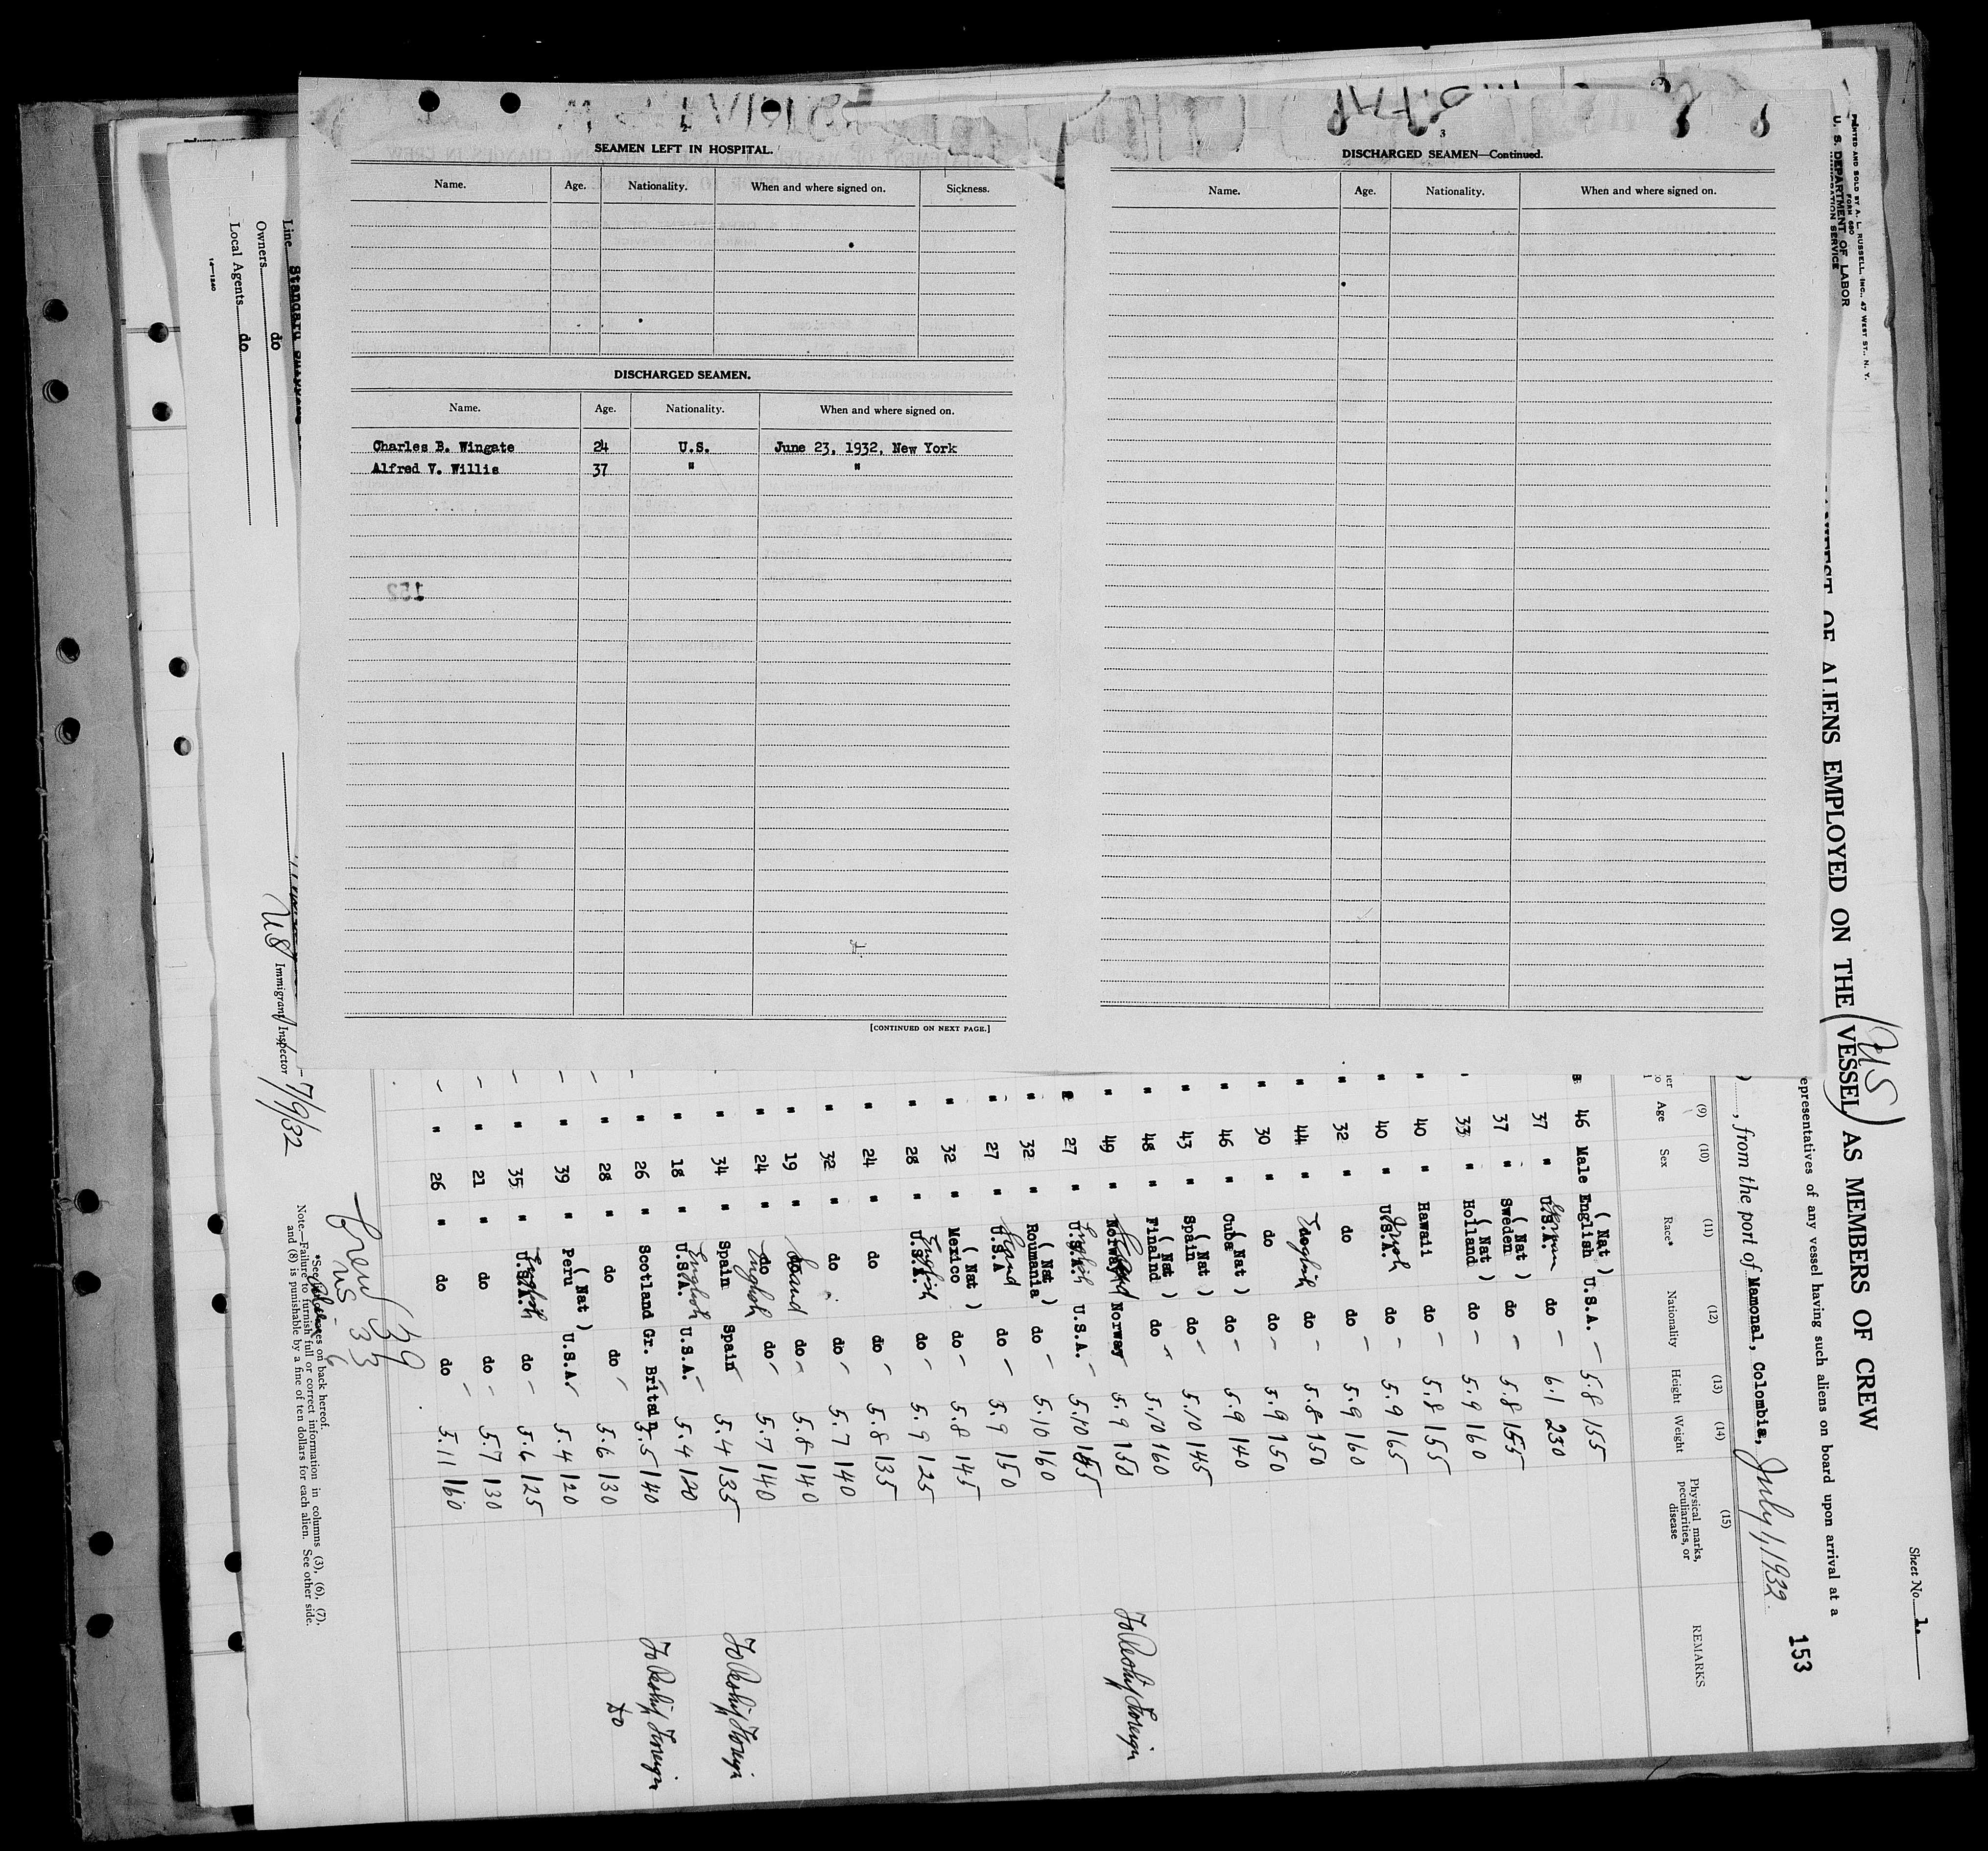 SEAMEN LEFT IN HOSPITAL.
Name. Age. Nationality. When and where signed on. Sickness.
DISCHARGED SEAMEN.
Name. Age. Nationality. When and where signed on.
Charles B. Wingate 24 U.S. June 23, 1932, New York
Alfred V. Willis 37 " "
[CONTINUED ON NEXT PAGE.]
3
DISCHARGED SEAMEN—Continued.
Name. Age. Nationality. When and where signed on.
PRINTED AND SOLD BY A. L. RUSSELL, INC., 47 WEST ST., N. Y.
FORM 680
U. S. DEPARTMENT OF LABOR
IMMIGRATION SERVICE
Sheet No. 1.
OF ALIENS EMPLOYED ON THE (VESSEL) AS MEMBERS OF CREW
US
epresentatives of any vessel having such aliens on board upon arrival at a
153
, from the port of Mamonal, Colombia, July 1, 1932
(9) (10) (11) (12) (13) (14) (15)
Age Sex Race* Nationality Height Weight Physical marks, peculiarities, or disease REMARKS
46 Male English (Nat) U.S.A. — 5.8 155
37 " U.S.A. German do — 6.1 230
37 " Sweden (Nat) do — 5.8 155
33 " Holland (Nat) do — 5.9 160
40 " Hawaii do — 5.8 155
40 " U.S.A. Irish do — 5.9 165
32 " do do — 5.9 160
44 " do English do — 5.8 150
30 " do do — 5.9 150
46 " Cuba (Nat) do — 5.9 140
43 " Spain (Nat) do — 5.10 145
48 " Finalnd (Nat) do — 5.10 160
49 " Norway Norway 5.9 150 To Reship Foreign
27 " U.S.A. English U.S.A. — 5.10 155
32 " Roumania (Nat) do — 5.10 160
27 " U.S.A do — 5.9 150
32 " Mexico (Nat) do — 5.8 145
28 " U.S.A. English do — 5.9 125
24 " do do — 5.8 135
32 " do do — 5.7 140
19 " do do — 5.8 140
24 " do English do — 5.7 140
34 " Spain Spain 5.4 135 To Reship Foreign
18 " U.S.A. English U.S.A. — 5.4 120
26 " Scotland Gr. Britain 5.5 140 To Reship Foreign
28 " do do — 5.6 130 do
39 " Peru (Nat) U.S.A. 5.4 120
35 " U.S.A. English do — 5.6 125
21 " do do — 5.7 130
26 " do do — 5.11 160
Crew 39
US 33
6
*See on back hereof.
Note.—Failure to furnish full or correct information in columns (3), (6), (7),
and (8) is punishable by a fine of ten dollars for each alien. See other side.
US Immigrant Inspector 7/9/32
Line
Owners do
Local Agents do
14—1240